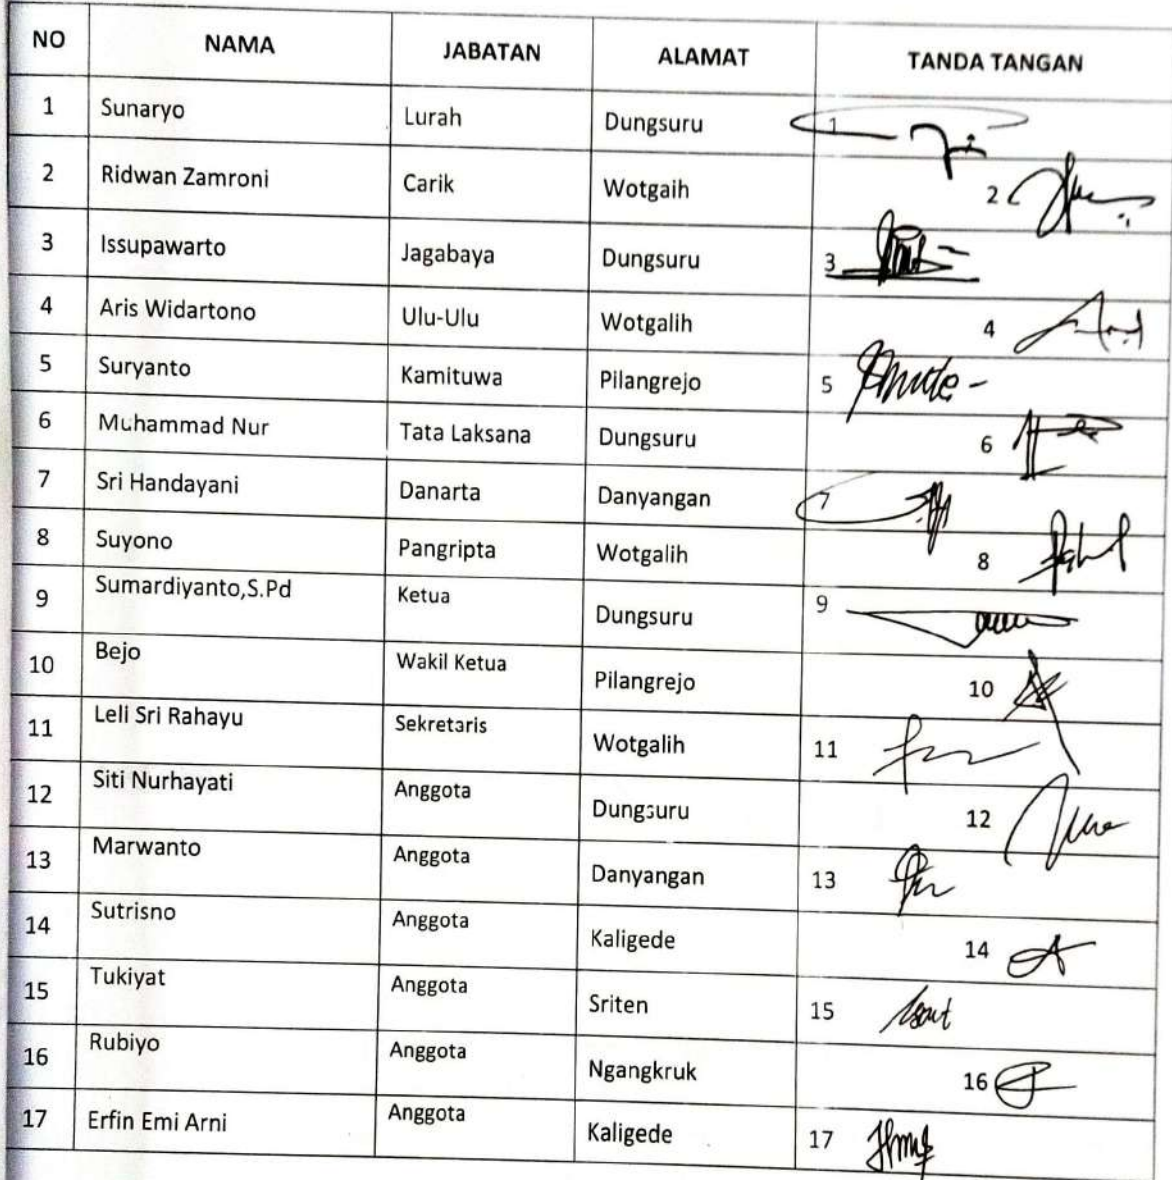 NO NAMA JABATAN ALAMAT TANDA TANGAN
1 Sunaryo Lurah Dungsuru 1
2 Ridwan Zamroni Carik Wotgaih 2
3 Issupawarto Jagabaya Dungsuru 3
4 Aris Widartono Ulu-Ulu Wotgalih 4
5 Suryanto Kamituwa Pilangrejo 5
6 Muhammad Nur Tata Laksana Dungsuru 6
7 Sri Handayani Danarta Danyangan 7
8 Suyono Pangripta Wotgalih 8
9 Sumardiyanto,S.Pd Ketua Dungsuru 9
10 Bejo Wakil Ketua Pilangrejo 10
11 Leli Sri Rahayu Sekretaris Wotgalih 11
12 Siti Nurhayati Anggota Dungsuru 12
13 Marwanto Anggota Danyangan 13
14 Sutrisno Anggota Kaligede 14
15 Tukiyat Anggota Sriten 15
16 Rubiyo Anggota Ngangkruk 16
17 Erfin Emi Arni Anggota Kaligede 17